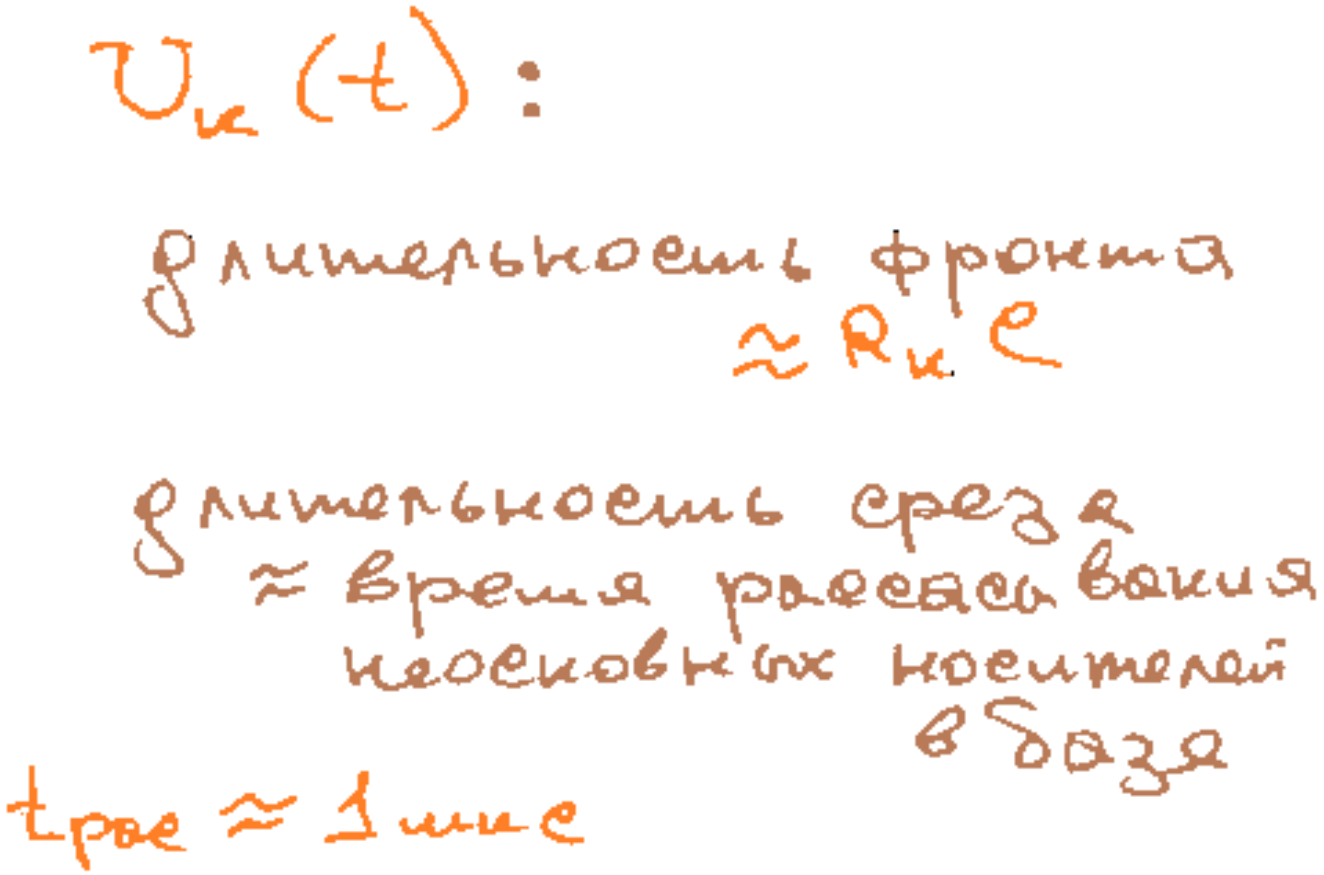 Uк (t) :
длительность фронта
≈ Rк C
длительность среза
≈ время рассасывания
неосновных носителей
в базе
tрас ≈ 1 мкс